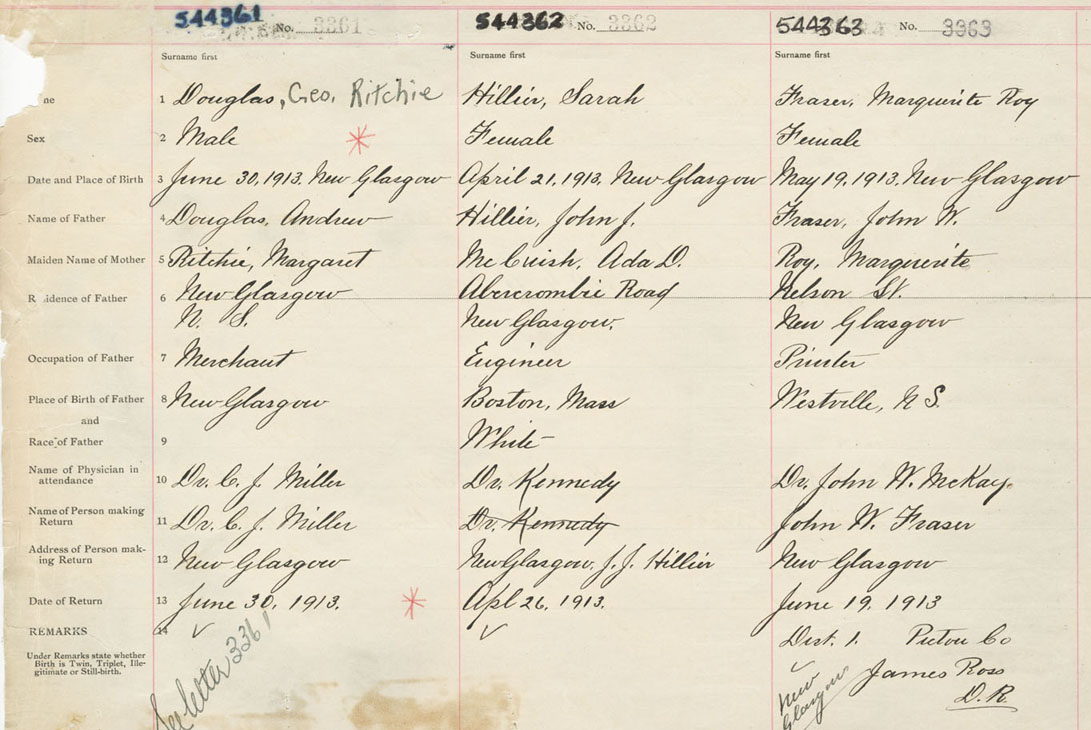 544361 No. 3361 544362 No. 3362 544363 No. 3363
Surname first Surname first Surname first
ne 1 Douglas, Geo. Ritchie Hillier, Sarah Fraser, Marguerite Roy
Sex 2 Male Female Female
Date and Place of Birth 3 June 30, 1913. New Glasgow April 21, 1913. New Glasgow May 19, 1913. New Glasgow
Name of Father 4 Douglas, Andrew Hillier, John J. Fraser, John W.
Maiden Name of Mother 5 Ritchie, Margaret McCuish, Ada D. Roy, Marguerite
R idence of Father 6 New Glasgow Abercrombie Road Nelson St.
N. S. New Glasgow. New Glasgow
Occupation of Father 7 Merchant Engineer Printer
Place of Birth of Father 8 New Glasgow Boston, Mass Westville, N S.
and
Race of Father 9 White
Name of Physician in
attendance 10 Dr. C. J. Miller Dr. Kennedy Dr. John W. McKay.
Name of Person making
Return 11 Dr. C. J. Miller Dr. Kennedy John W. Fraser
Address of Person mak-
ing Return 12 New Glasgow New Glasgow, J. J. Hillier New Glasgow
Date of Return 13 June 30, 1913. Apl 26, 1913. June 19, 1913
REMARKS 14 Dist. 1. Pictou Co
Under Remarks state whether
Birth is Twin, Triplet, Ille-
gitimate or Still-birth.
See letter 3361
New
Glasgow
James Ross
D.R.